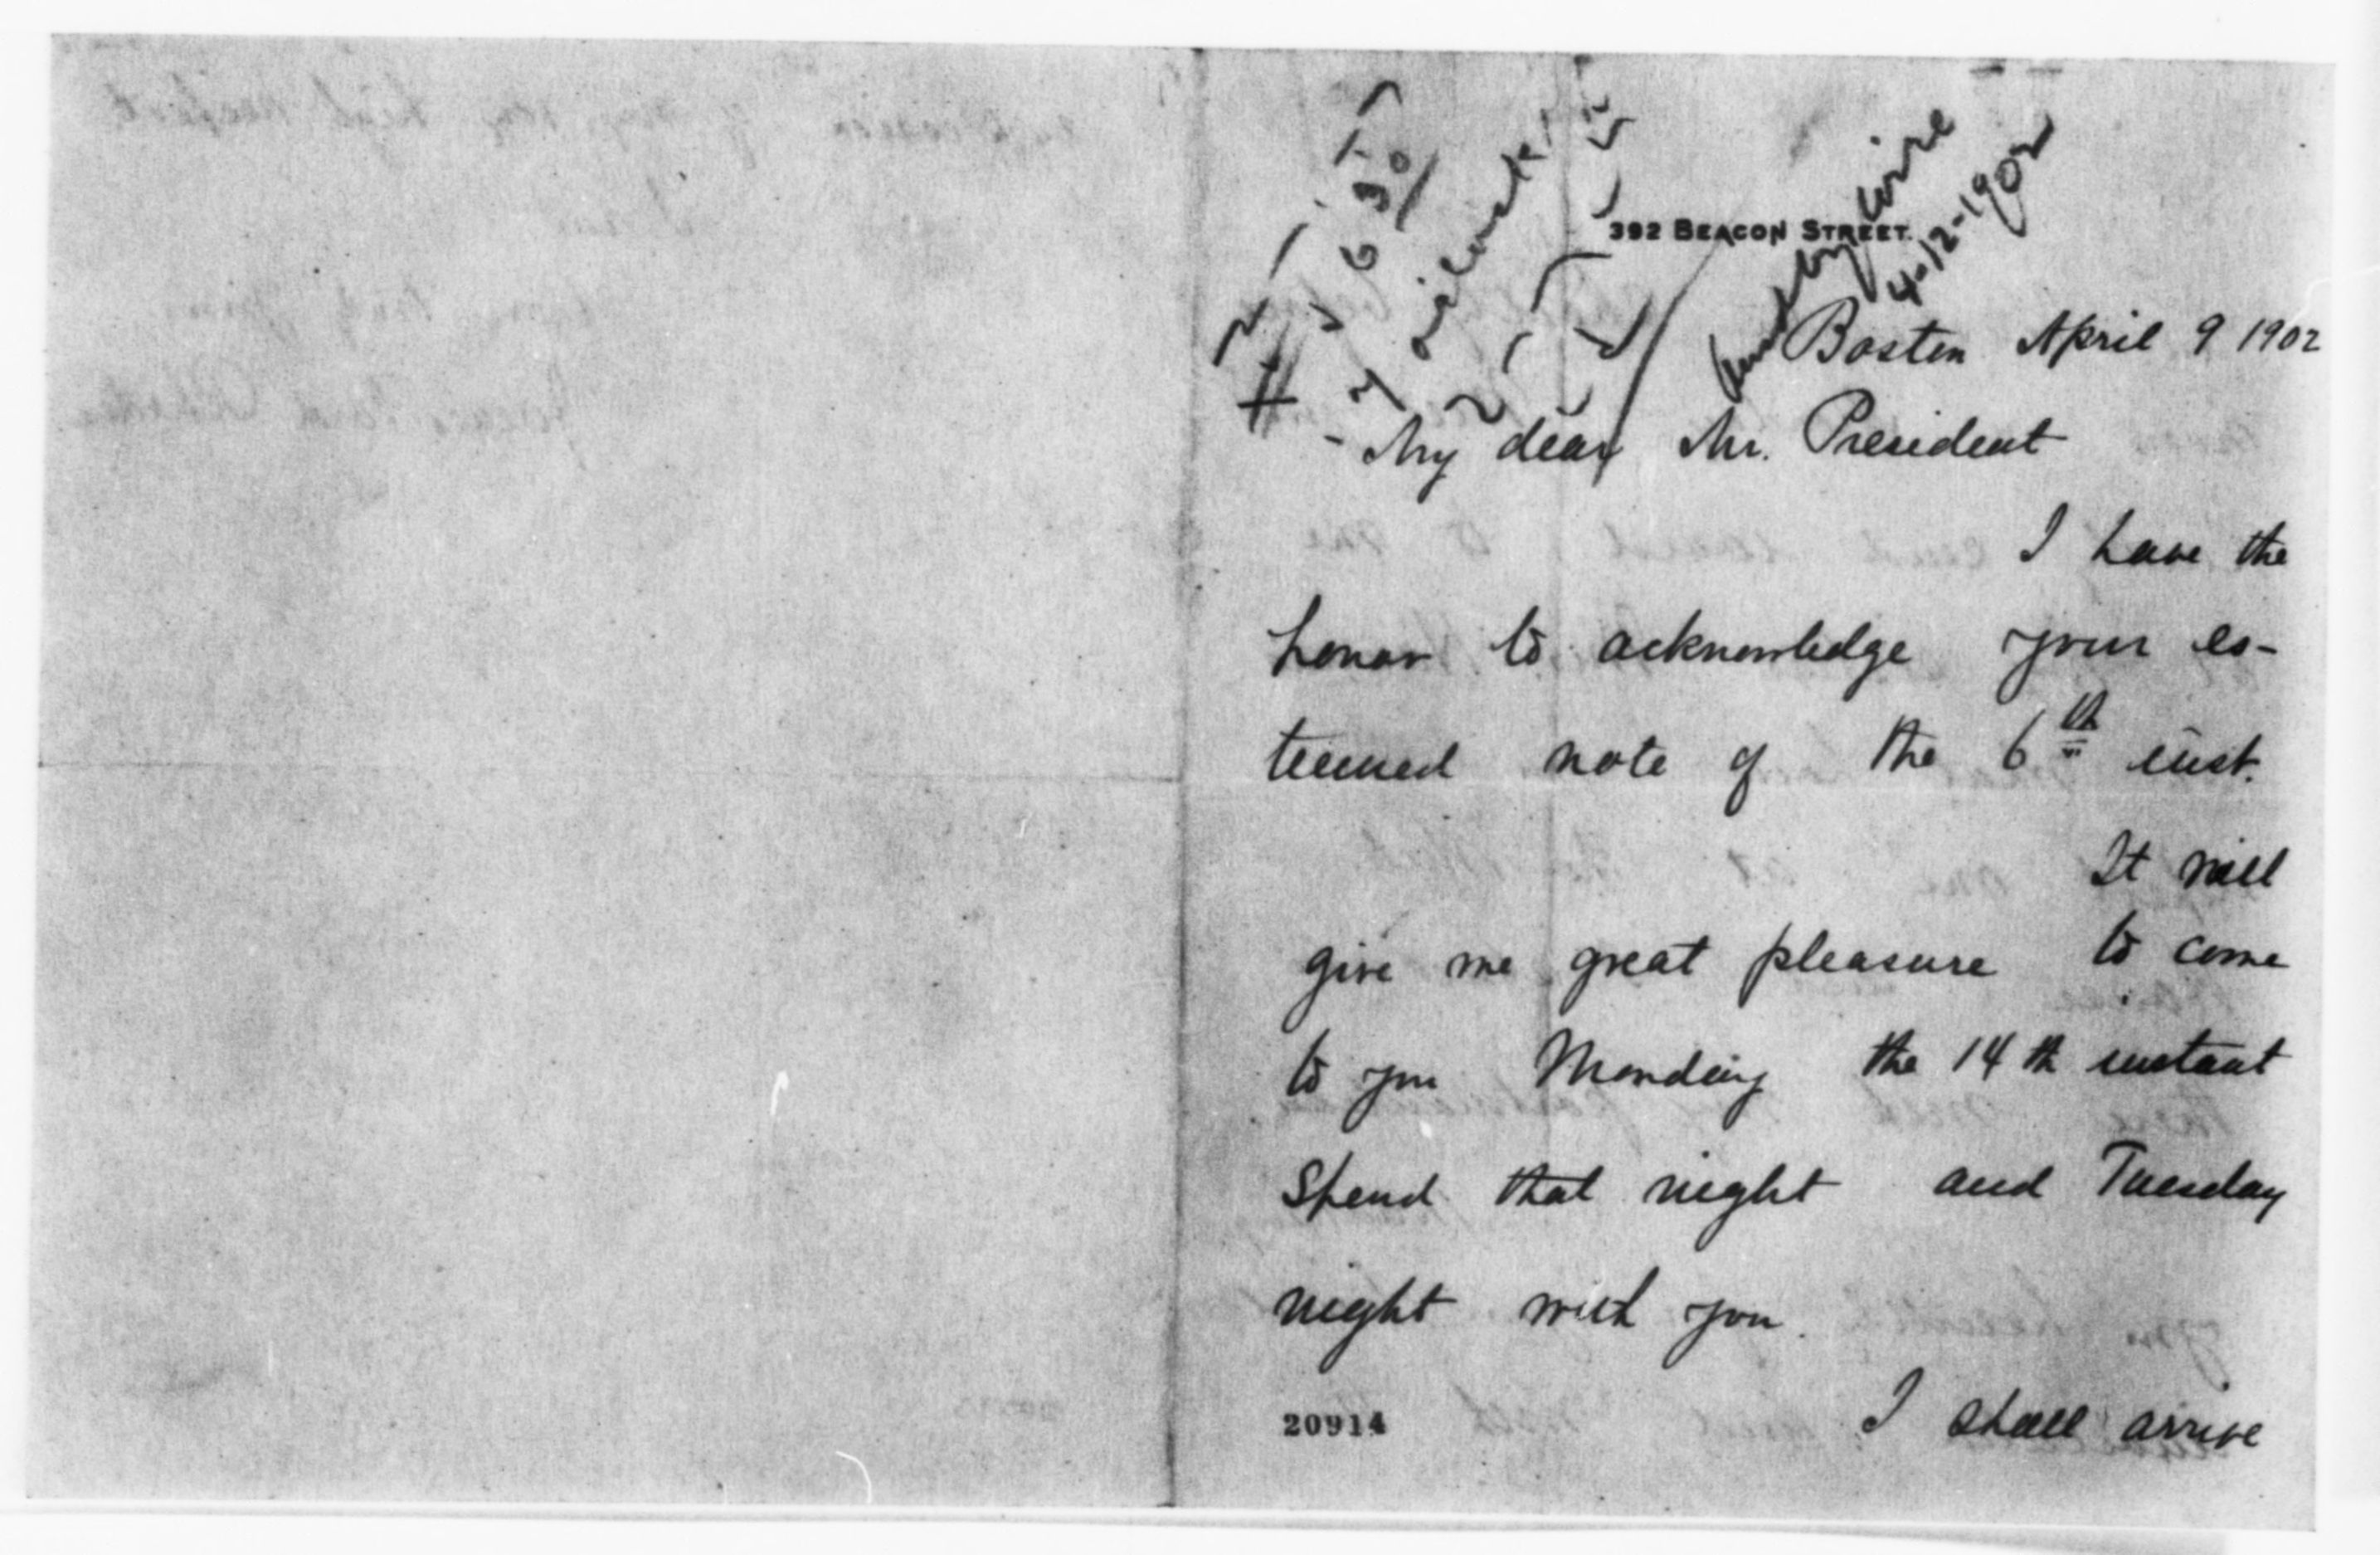 392 BEACON STREET.
by wire
4-12-1902
Boston April 9 1902
My dear Mr. President
I have the
honor to acknowledge your es-
teemed note of the 6th inst.
It will
give me great pleasure to come
to you Monday the 14th instant
Spend that night and Tuesday
night with you.
I shall arrive
20914